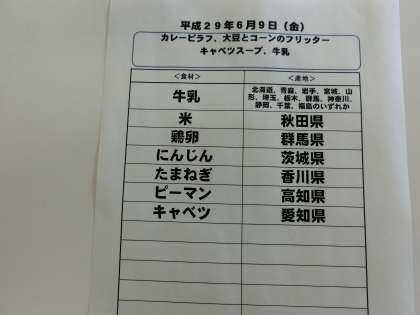 平成29年6月9日(金)
カレーピラフ、大豆とコーンのフリッター
キャベツスープ、牛乳
<食材> <産地>
牛乳 北海道、青森、岩手、宮城、山
形、埼玉、栃木、群馬、神奈川、
静岡、千葉、福島のいずれか
米 秋田県
鶏卵 群馬県
にんじん 茨城県
たまねぎ 香川県
ピーマン 高知県
キャベツ 愛知県